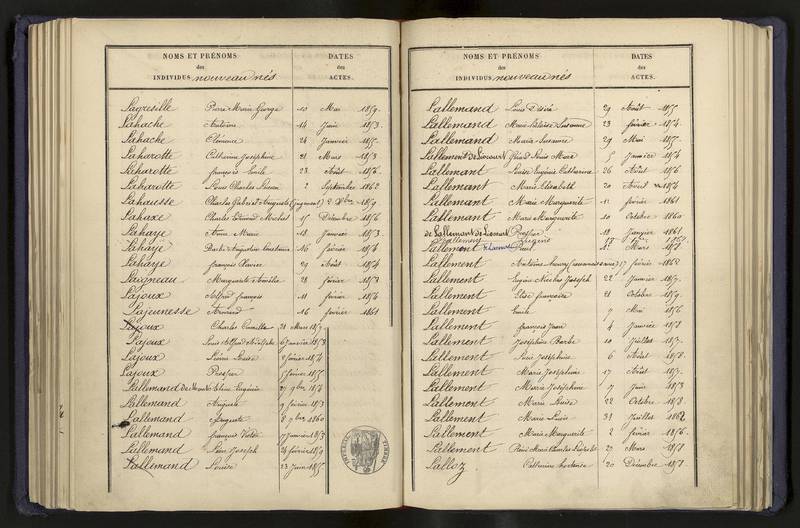 NOMS ET PRÉNOMS
des
INDIVIDUS nouveau nés
DATES
des
ACTES.
Lagresille Pierre Marie George 10 Mai 1859.
Lahache Antoine 14 Juin 1853.
Lahache Clémence 24 Janvier 1855.
Laharotte Catherine Joséphine 21 Mars 1853
Laharotte françois Emile 23 Août 1856.
Laharotte Louis Charles Lucien 2 Septembre 1862
Lahausse Charles Gabriel et Auguste (jugement) 2 Xbre 1859
Lahaxe Charles Edmond Michel 15 Décembre 1856
Lahaye Anne Marie 18 Janvier 1853.
Lahaye Barbe Augustine 16 février
Lahaye françois Xavier 29 Août 1854
Laigneau Marguerite Amélie 28 février 1853
Lajoux Alfred françois 11 février 1856
Lajeunesse Armand 16 février 1861
Lajoux Charles Camille 28 Mars
Lajoux Louis Alfred Adolphe 6 Janvier 1853
Lajoux Louise 8 février 1854
Lajoux Prosper 5 février 1855
Lallemand de Eugénie 27 9bre
Lallemand Auguste 9 février 1853
Lallemand Auguste 8 9bre 1860
Lallemand françois Victor 7 Janvier 1853
Lallemand Joseph 24 février 1859
Lallemand Louise 23 Juin 1855
NOMS ET PRÉNOMS
des
INDIVIDUS nouveau nés
DATES
des
ACTES.
Lallemand Louis Désiré 29 Août 1855.
Lallemand Marie Suzanne 23 février 1854.
Lallemand Maria Suzanne 29 Mai 1855.
Lallemant de Liocourt Gérard Louis Marie 5 Janvier 1854
Lallemant Louise Eugénie Catherine 26 Août 1856
Lallemant Marie Elisabeth 20 Avril 1854
Lallemant Marie Marguerite 11 février 1861
Lallemant Marie Marguerite 10 Octobre 1860
de Lallemant de Prosper 18 Janvier 1861
Lallement Eugénie 17
Lallement Paul 1er Mars
Lallement Antoine 17 février 1862
Lallement Eugène Nicolas Joseph 22 Janvier
Lallement Elise françoise 21 Octobre 1859.
Lallement Emile 7 Mai 1856
Lallement françois Jean 4 Janvier 1858
Lallement Joséphine Barbe 10 Juillet 1853.
Lallement Joséphine 6 Août 1858.
Lallement Marie Joséphine 17 Août 1853.
Lallement Marie Joséphine 7 Juin 1853
Lallement Marie Louise 22 Octobre 1858.
Lallement Marie Louis 31 Juillet 1862
Lallement Marie Marguerite 2 février 1856.
Lallement René Marie Charles 29 Mars 1858
Lalloz Catherine hortense 20 Décembre